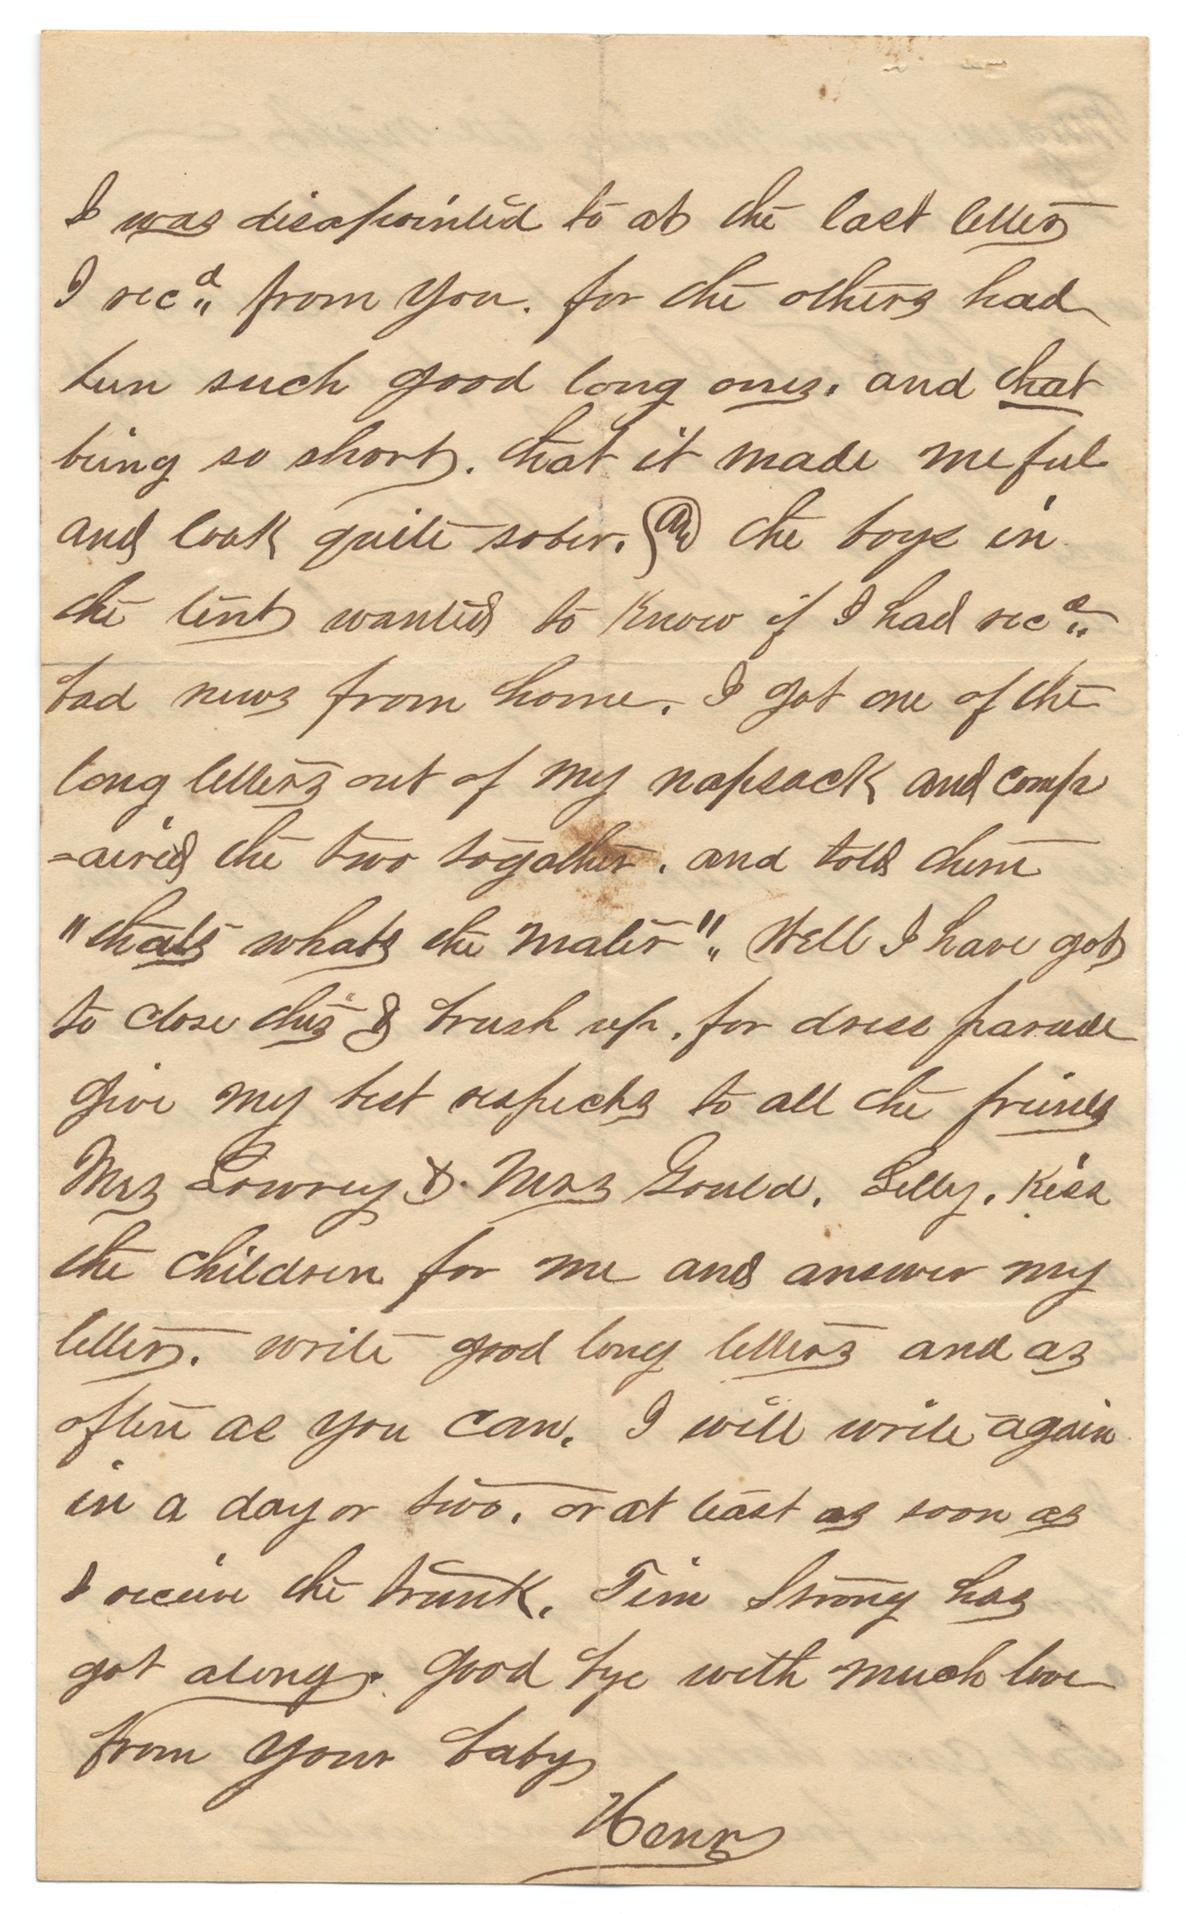 I was disapointed to at the last letter
I recd from you. for the others had
bun such good long ones. and that
being so short. that it made me ful
and look quite sober. the boys in
the tent wanted to know if I had recd
bad news from home. I got one of the
long letters out of my napsack and comp
-aired the two together. and told them
"thats whats the mater". Well I have got
to close this & brush up. for dress parade
give my best respects to all the friends
Mrs Lowrey & Mrs Gould. Lilly. Kiss
the children for me and answer my
letter. write good long letters and as
often as you can. I will write again
in a day or two. or at least as soon as
I receive the trunk. Tim Strong has
got along. good bye with much love
from your baby
Henry